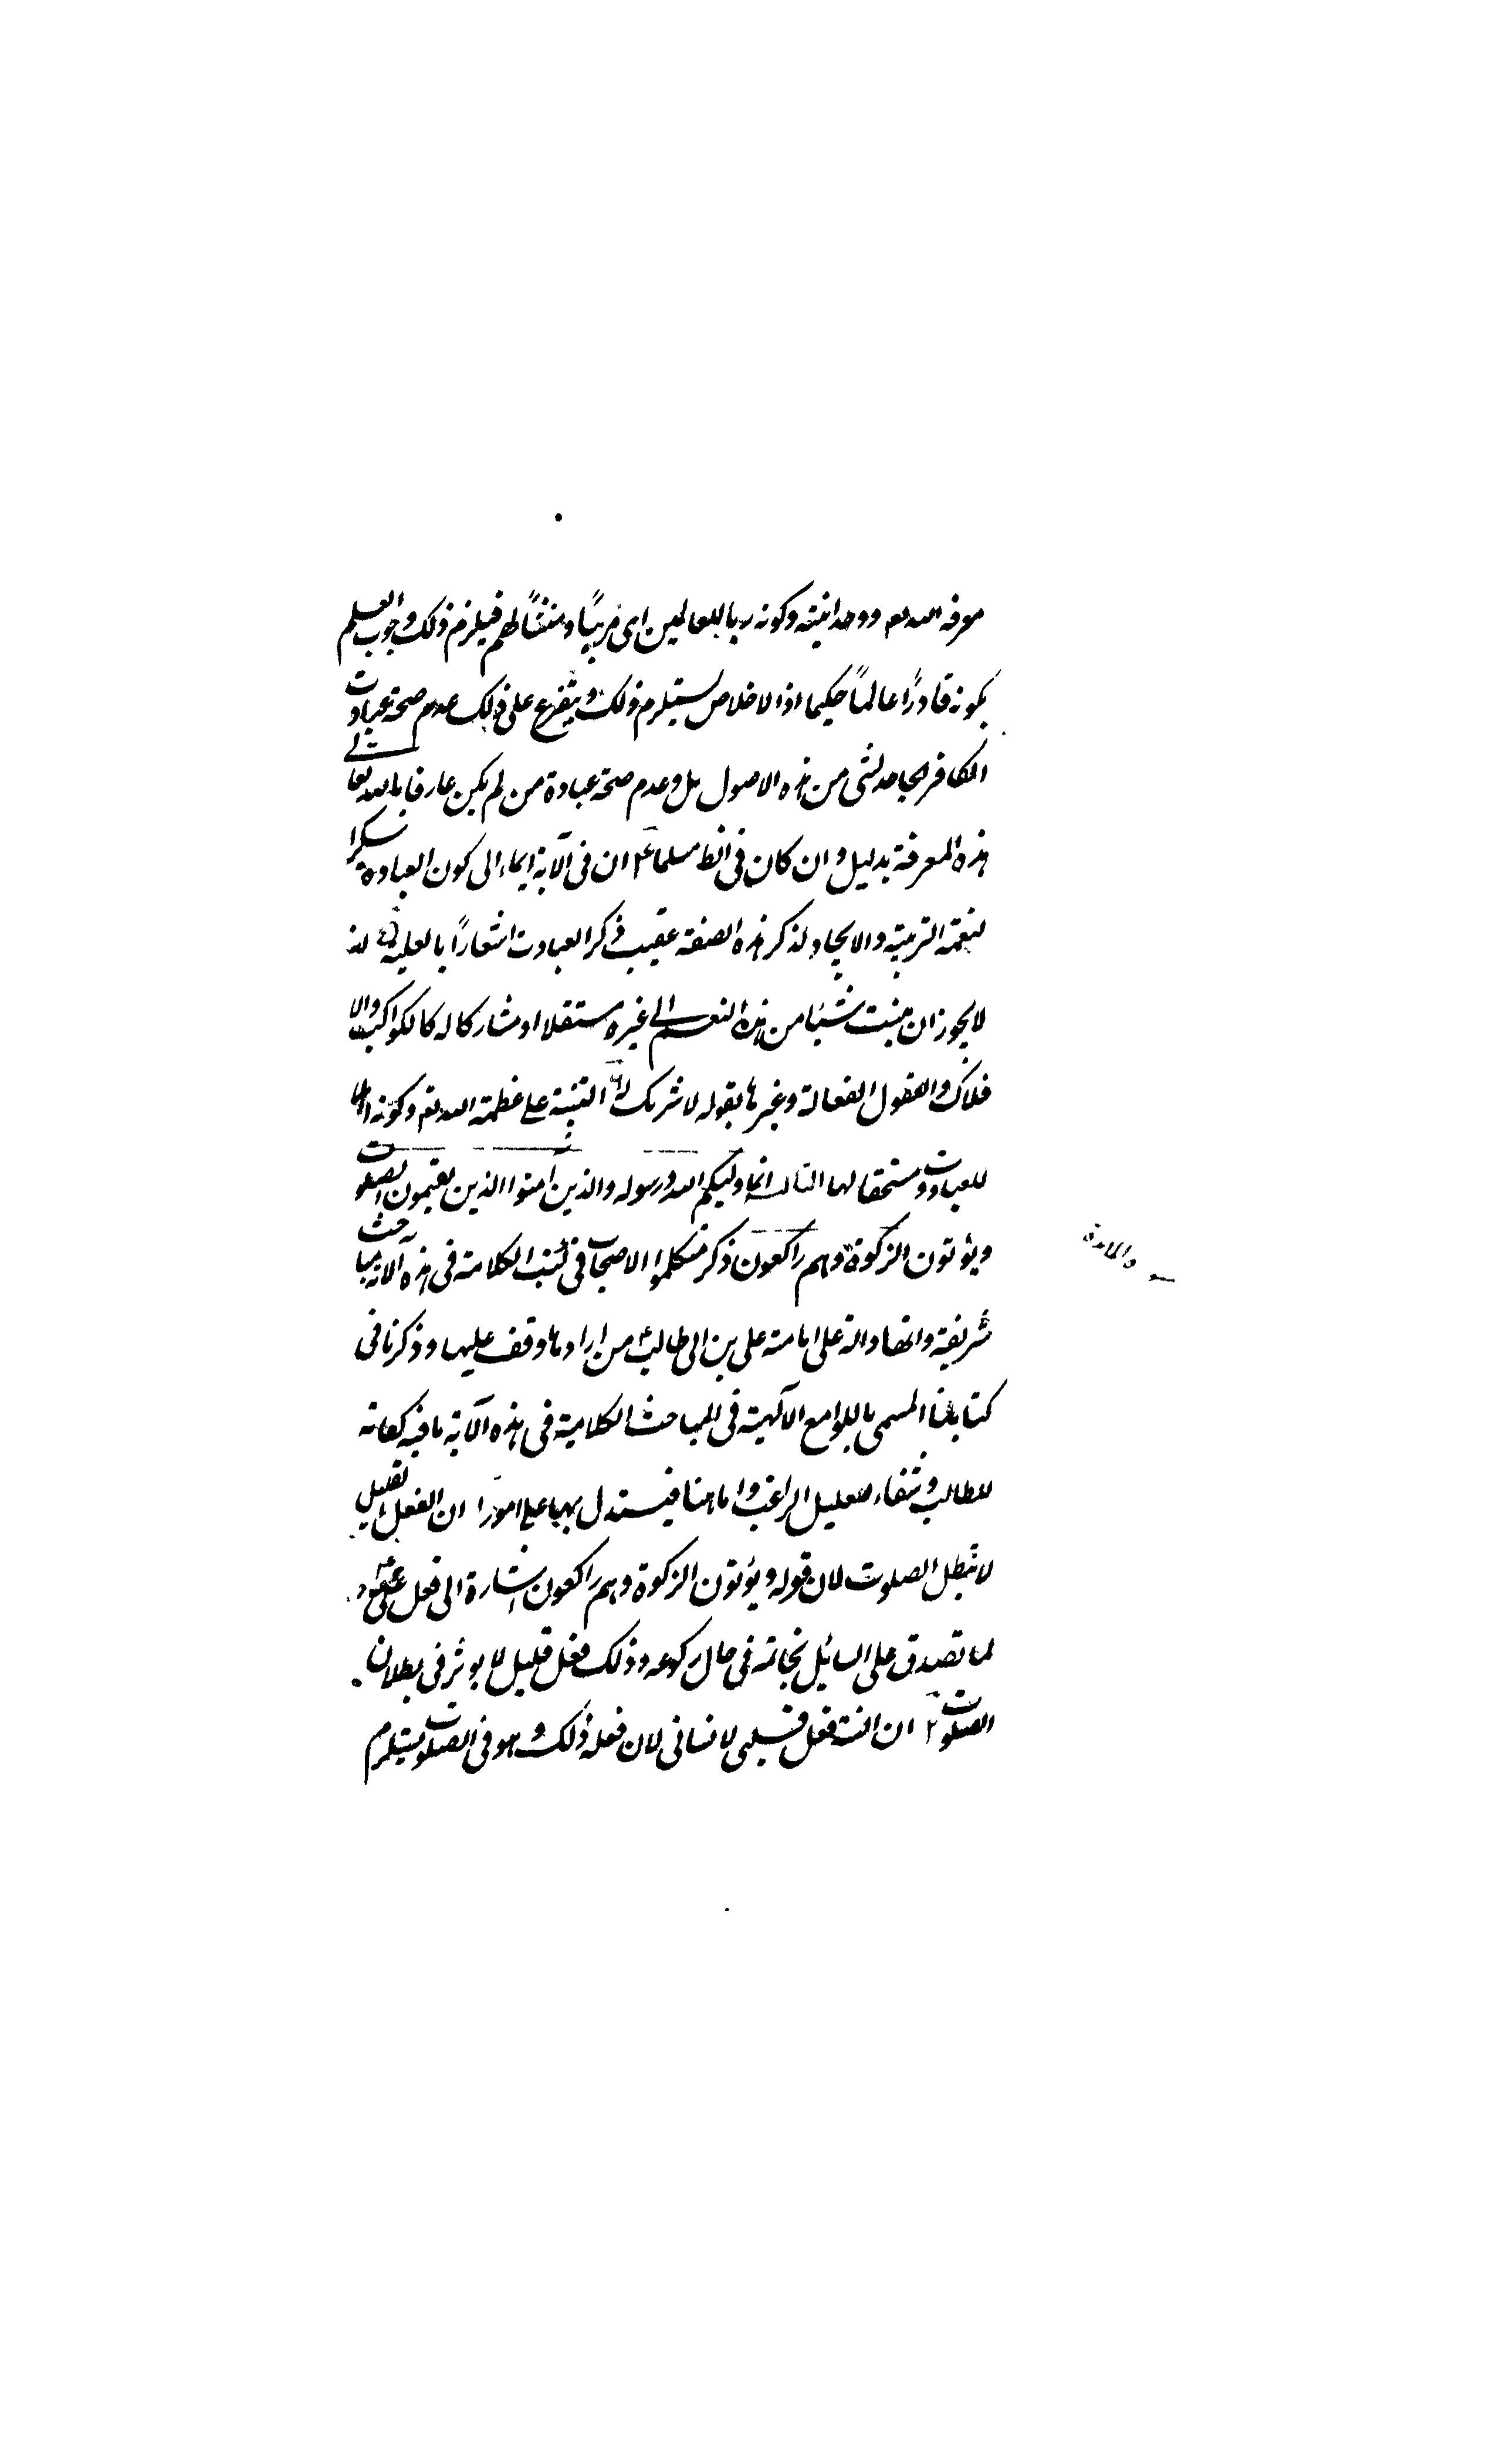 معرفة الله تع ووحدانيته وكونه ربا للعالمين اى مربيًا ومنشأً لهم فيلزم ذلك وجوب العلم
بكونه قادرًا عالمًا حكيما اذ الاخلاص يستلزم ذلك ويتفرع على ذلك عدم صحة عبادت
الكافر الجاحد لشى من هذه الاصول بل وعدم صحة عبادة من لم يكن عارفا بالله تعالى
هذه المعرفة بدليل وان كان فى الظ مسلما ٤ ان فى الآية ايماء الى كون العبادة شكرا
لنعمة التربية والايجاد لذكر هذه الصفة عقيب ذكر العبادت اشعارًا بالعلية
لا يجوز ان ينسب شيئا من هذه النعم الى غيره مستقلا او مشاركا له كالكواكب والا
فلاك والعقول الفعالة وغيرها بقوله لا شريك له ٦ التنبيه على عظمة الله تع وكونه اهلا
للعبادت ومستحقا لها الثالثة انما وليكم الله ورسوله والذين آمنوا الذين يقيمون الصلوت
ويؤتون الزكوة وهم راكعون ذكر متكلموا الاصحاب فى كتب الكلامية فى هذه الآية مباحث
شريفة وانها دالة على امامة على بن ابى طالب ع من ارادها وقف عليها وذكرنا فى
كتابنا المسمى باللوامع الآلهية فى المباحث الكلامية فى هذه الآية ما فيه كفاية
للطالب وشفاء لعليل الراغب واما هنا فيستدل بها على امور ا ان الفعل القليل
لا تبطل الصلوت لان قوله ويؤتون الزكوة وهم راكعون اشارة الى فعل على ع
لما تصدق على السائل بخاتمه فى حال ركوعه وذلك فعل قليل لا يوثر فى بطلان
الصلوت ٢ ان النية فعل قلبى لا لسانى لان فعله ذلك وهو فى الصلوت يستلزم